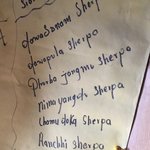 Dawa Sanam Sherpa
dawa pula sherpa
Dhurba jangmu sherpa
nima yangdi Sherpa
Chomu doka Sherpa
Ranchhi Sherpa